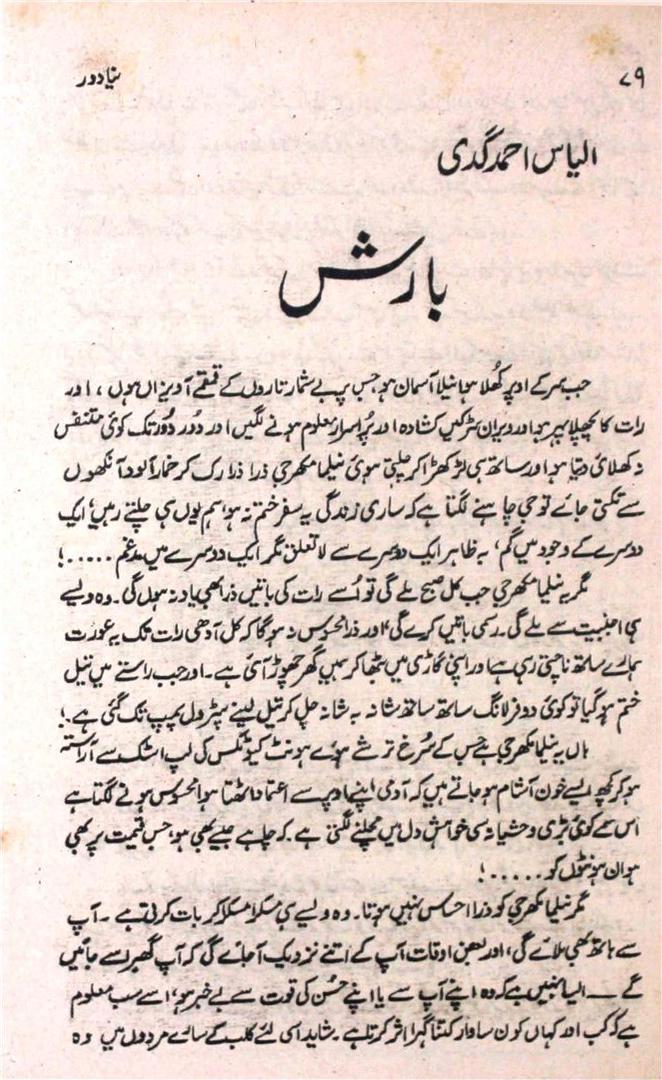 ۷۹
نیا دور
الیاس احمد گدی
بارش
جب سر کے اوپر کھلا ہوا نیلا آسمان ہو، جس پر بے شمار تاروں کے قمقمے آویزاں ہوں، اور
رات کا پچھلا پہر ہو اور ویران سڑکیں کشادہ اور پُراسرار معلوم ہونے لگیں اور دُور دُور تک کوئی متنفس
نہ دکھلائی دیتا ہو اور ساتھ ہی لڑکھڑا کر چلتی ہوئی نیلما مکھرجی ذرا ذرا رک کر خمار آلود آنکھوں
سے تکتی جائے تو جی چاہنے لگتا ہے کہ ساری زندگی یہ سفر ختم نہ ہو، ہم یوں ہی چلتے رہیں، ایک
دوسرے کے وجود میں گم، بہ ظاہر ایک دوسرے سے لاتعلق مگر ایک دوسرے میں مدغم .....!
مگر یہ نیلما مکھرجی جب کل صبح ملے گی تو اُسے رات کی باتیں ذرا بھی یاد نہ ہوں گی۔ وہ ویسے
ہی اجنبیت سے ملے گی۔ رسمی باتیں کرے گی، اور ذرا محسوس نہ ہوگا کہ کل آدھی رات تک یہ عورت
ہمارے ساتھ ناچتی رہی ہے اور اپنی گاڑی میں بٹھا کر ہمیں گھر چھوڑ آئی ہے۔ اور جب راستے میں تیل
ختم ہوگیا تو کوئی دو فرلانگ ساتھ ساتھ شانہ بہ شانہ چل کر تیل لینے پٹرول پمپ تک گئی ہے۔!
ہاں یہ نیلما مکھرجی ہے جس کے سُرخ ترشے ہوئے ہونٹ کیوٹکس کی لپ اسٹک سے آراستہ
ہو کر کچھ ایسے خون آشام ہو جاتے ہیں کہ آدمی اپنے اوپر سے اعتماد اٹھتا ہوا محسوس ہونے لگتا ہے
اس سمے کوئی بڑی وحشیانہ سی خواہش دل میں مچلنے لگتی ہے۔ کہ چاہے جیسے بھی ہو، جس قیمت پر بھی
ہو ان ہونٹوں کو .....!
مگر نیلما مکھرجی کو ذرا احساس نہیں ہوتا۔ وہ ویسے ہی مسکرا مسکرا کر بات کرتی ہے۔ آپ
سے ہاتھ بھی ملائے گی، اور بعض اوقات آپ کے اتنے نزدیک آجائے گی کہ آپ گھبرا سے جائیں
گے — ایسا نہیں ہے کہ وہ اپنے آپ سے یا اپنے حُسن کی قوت سے بے خبر ہو، اسے سب معلوم
ہے کہ کب اور کہاں کون سا وار کتنا گہرا اثر کرتا ہے۔ شاید اسی لئے کلب کے سارے مردوں میں وہ